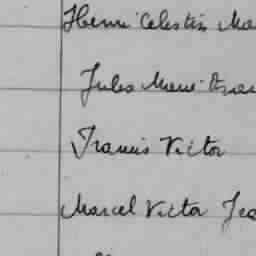 Henri Celestin Ma
Jules Marie Fran
Francis Victor
Marcel Victor Jea